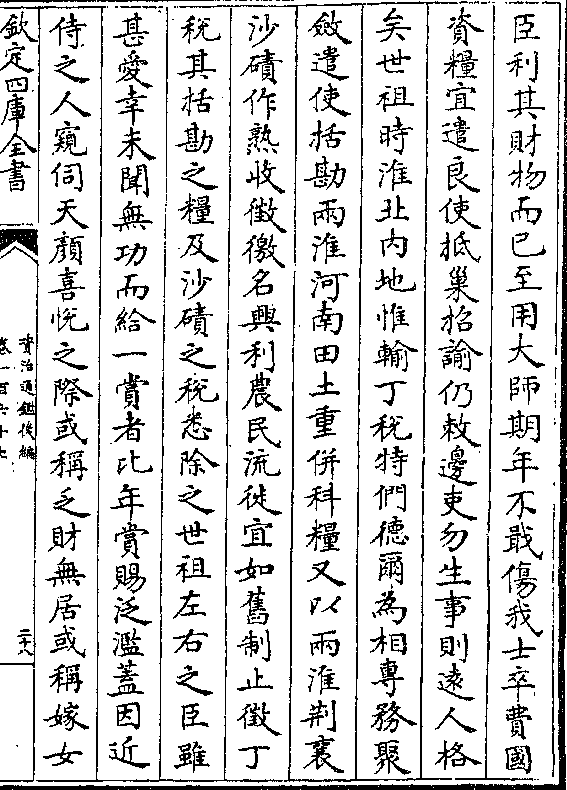 臣利其財物而已至用大師期年不戢傷我士卒費國
資糧宜遣良使抵巢招諭仍敕邊吏勿生事則遠人格
矣世祖時淮北内地惟輸丁稅特們德爾為相專務聚
斂遣使括勘兩淮河南田土重併科糧又以兩淮荆襄
沙磧作熟收徵徼名興利農民流徙宜如舊制止徵丁
稅其括勘之糧及沙磧之稅悉除之世祖左右之臣雖
甚愛幸未聞無功而給一賞者比年賞賜泛濫蓋因近
侍之人窺伺天顔喜悅之際或稱乏財無居或稱嫁女
欽定四庫全書
資治通鑑後編
卷一百六十七
二十八